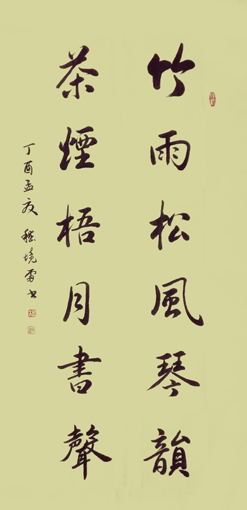 竹雨松風琴韻
茶煙梧月書聲
丁酉孟夏 程境雷书